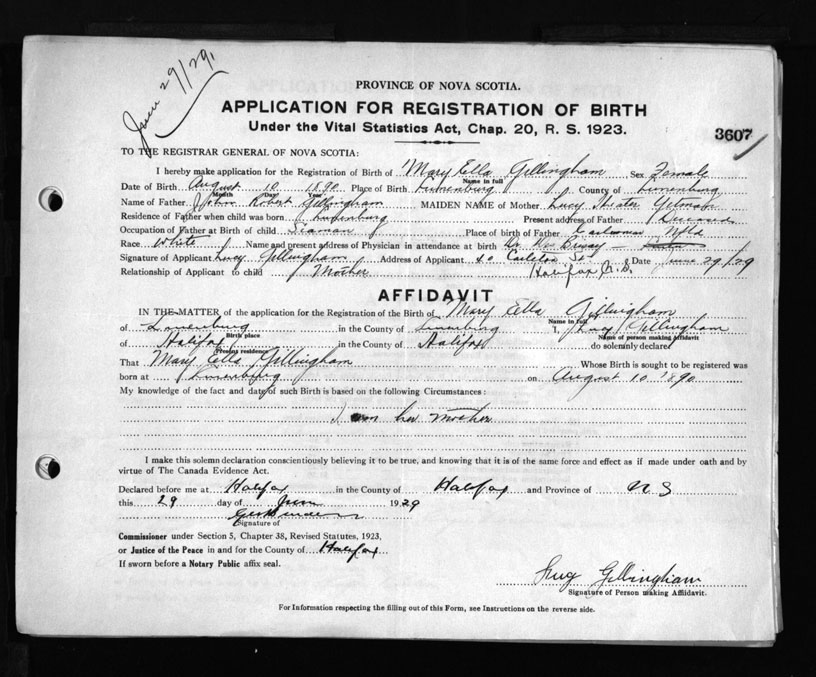 June 29/29.
PROVINCE OF NOVA SCOTIA.
APPLICATION FOR REGISTRATION OF BIRTH
Under the Vital Statistics Act, Chap. 20, R. S. 1923.
3607
TO THE REGISTRAR GENERAL OF NOVA SCOTIA:
I hereby make application for the Registration of Birth of Mary Ella Gillingham Sex Female
Name in full
Date of Birth August 10 1890 Place of Birth Lunenburg County of Lunenburg
Month Day Year
Name of Father John Robert Gillingham MAIDEN NAME of Mother Lucy Hester
Residence of Father when child was born Lunenburg Present address of Father Deceased
Occupation of Father at Birth of child Seaman Place of birth of Father Nfld
Race White Name and present address of Physician in attendance at birth Dr
Signature of Applicant Lucy Gillingham Address of Applicant 40 Carleton St. Date June 29/29
Relationship of Applicant to child Mother Halifax N.S.
AFFIDAVIT
IN THE MATTER of the application for the Registration of the Birth of Mary Ella Gillingham
Name in full
of Lunenburg in the County of Lunenburg I, Lucy Gillingham
Birth place Name of person making affidavit
of Halifax in the County of Halifax do solemnly declare
Present residence
That Mary Ella Gillingham Whose Birth is sought to be registered was
born at Lunenburg on August 10 1890
My knowledge of the fact and date of such Birth is based on the following Circumstances:
I am her mother
I make this solemn declaration conscientiously believing it to be true, and knowing that it is of the same force and effect as if made under oath and by
virtue of The Canada Evidence Act.
Declared before me at Halifax in the County of Halifax and Province of N S
this 29 day of June 1929
Signature of
Commissioner under Section 5, Chapter 38, Revised Statutes, 1923,
or Justice of the Peace in and for the County of Halifax
If sworn before a Notary Public affix seal.
Lucy Gillingham
Signature of Person making Affidavit.
For Information respecting the filling out of this Form, see Instructions on the reverse side.